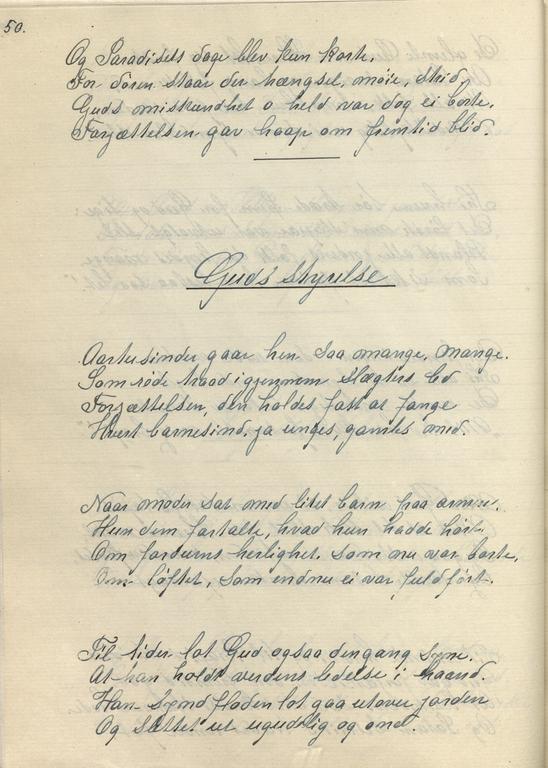 50.
Og Paradisets dage blev kun korte,
For dören staar der trængsel, møie, strid,
Guds miskundhet o held var dog ei borte,
Forjættelsen gav haap om fremtid blid.
Guds Styrelse
Aartusinder gaar hen saa mange, mange.
Som röde traad igjennem slægters led
Forjættelsen, den holdes fast at fange
Hvert barnesind, ja unges, gamles med.
Naar moder sat med litet barn paa armen,
Hun dem fortalte, hvad hun hadde hört
Om fordums herlighet, som nu var borte,
Om löftet, som endnu ei var fuldfört.
Til tider lot Gud ogsaa dengang syne.
At han holdt verdens ledelse i haand.
Han syndfloden lot gaa utover jorden
Og ut ugudelig og ond.